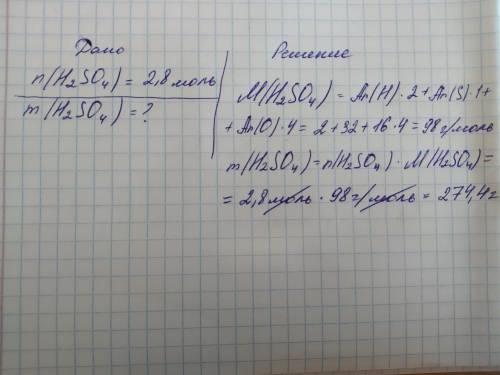 Дано
n(H₂SO₄) = 2,8 моль
m(H₂SO₄) = ?
Решение
M(H₂SO₄) = Ar(H)·2 + Ar(S)·1 +
+ Ar(O)·4 = 2 + 32 + 16·4 = 98 г/моль
m(H₂SO₄) = n(H₂SO₄) · M(H₂SO₄) =
= 2,8 моль · 98 г/моль = 274,4 г